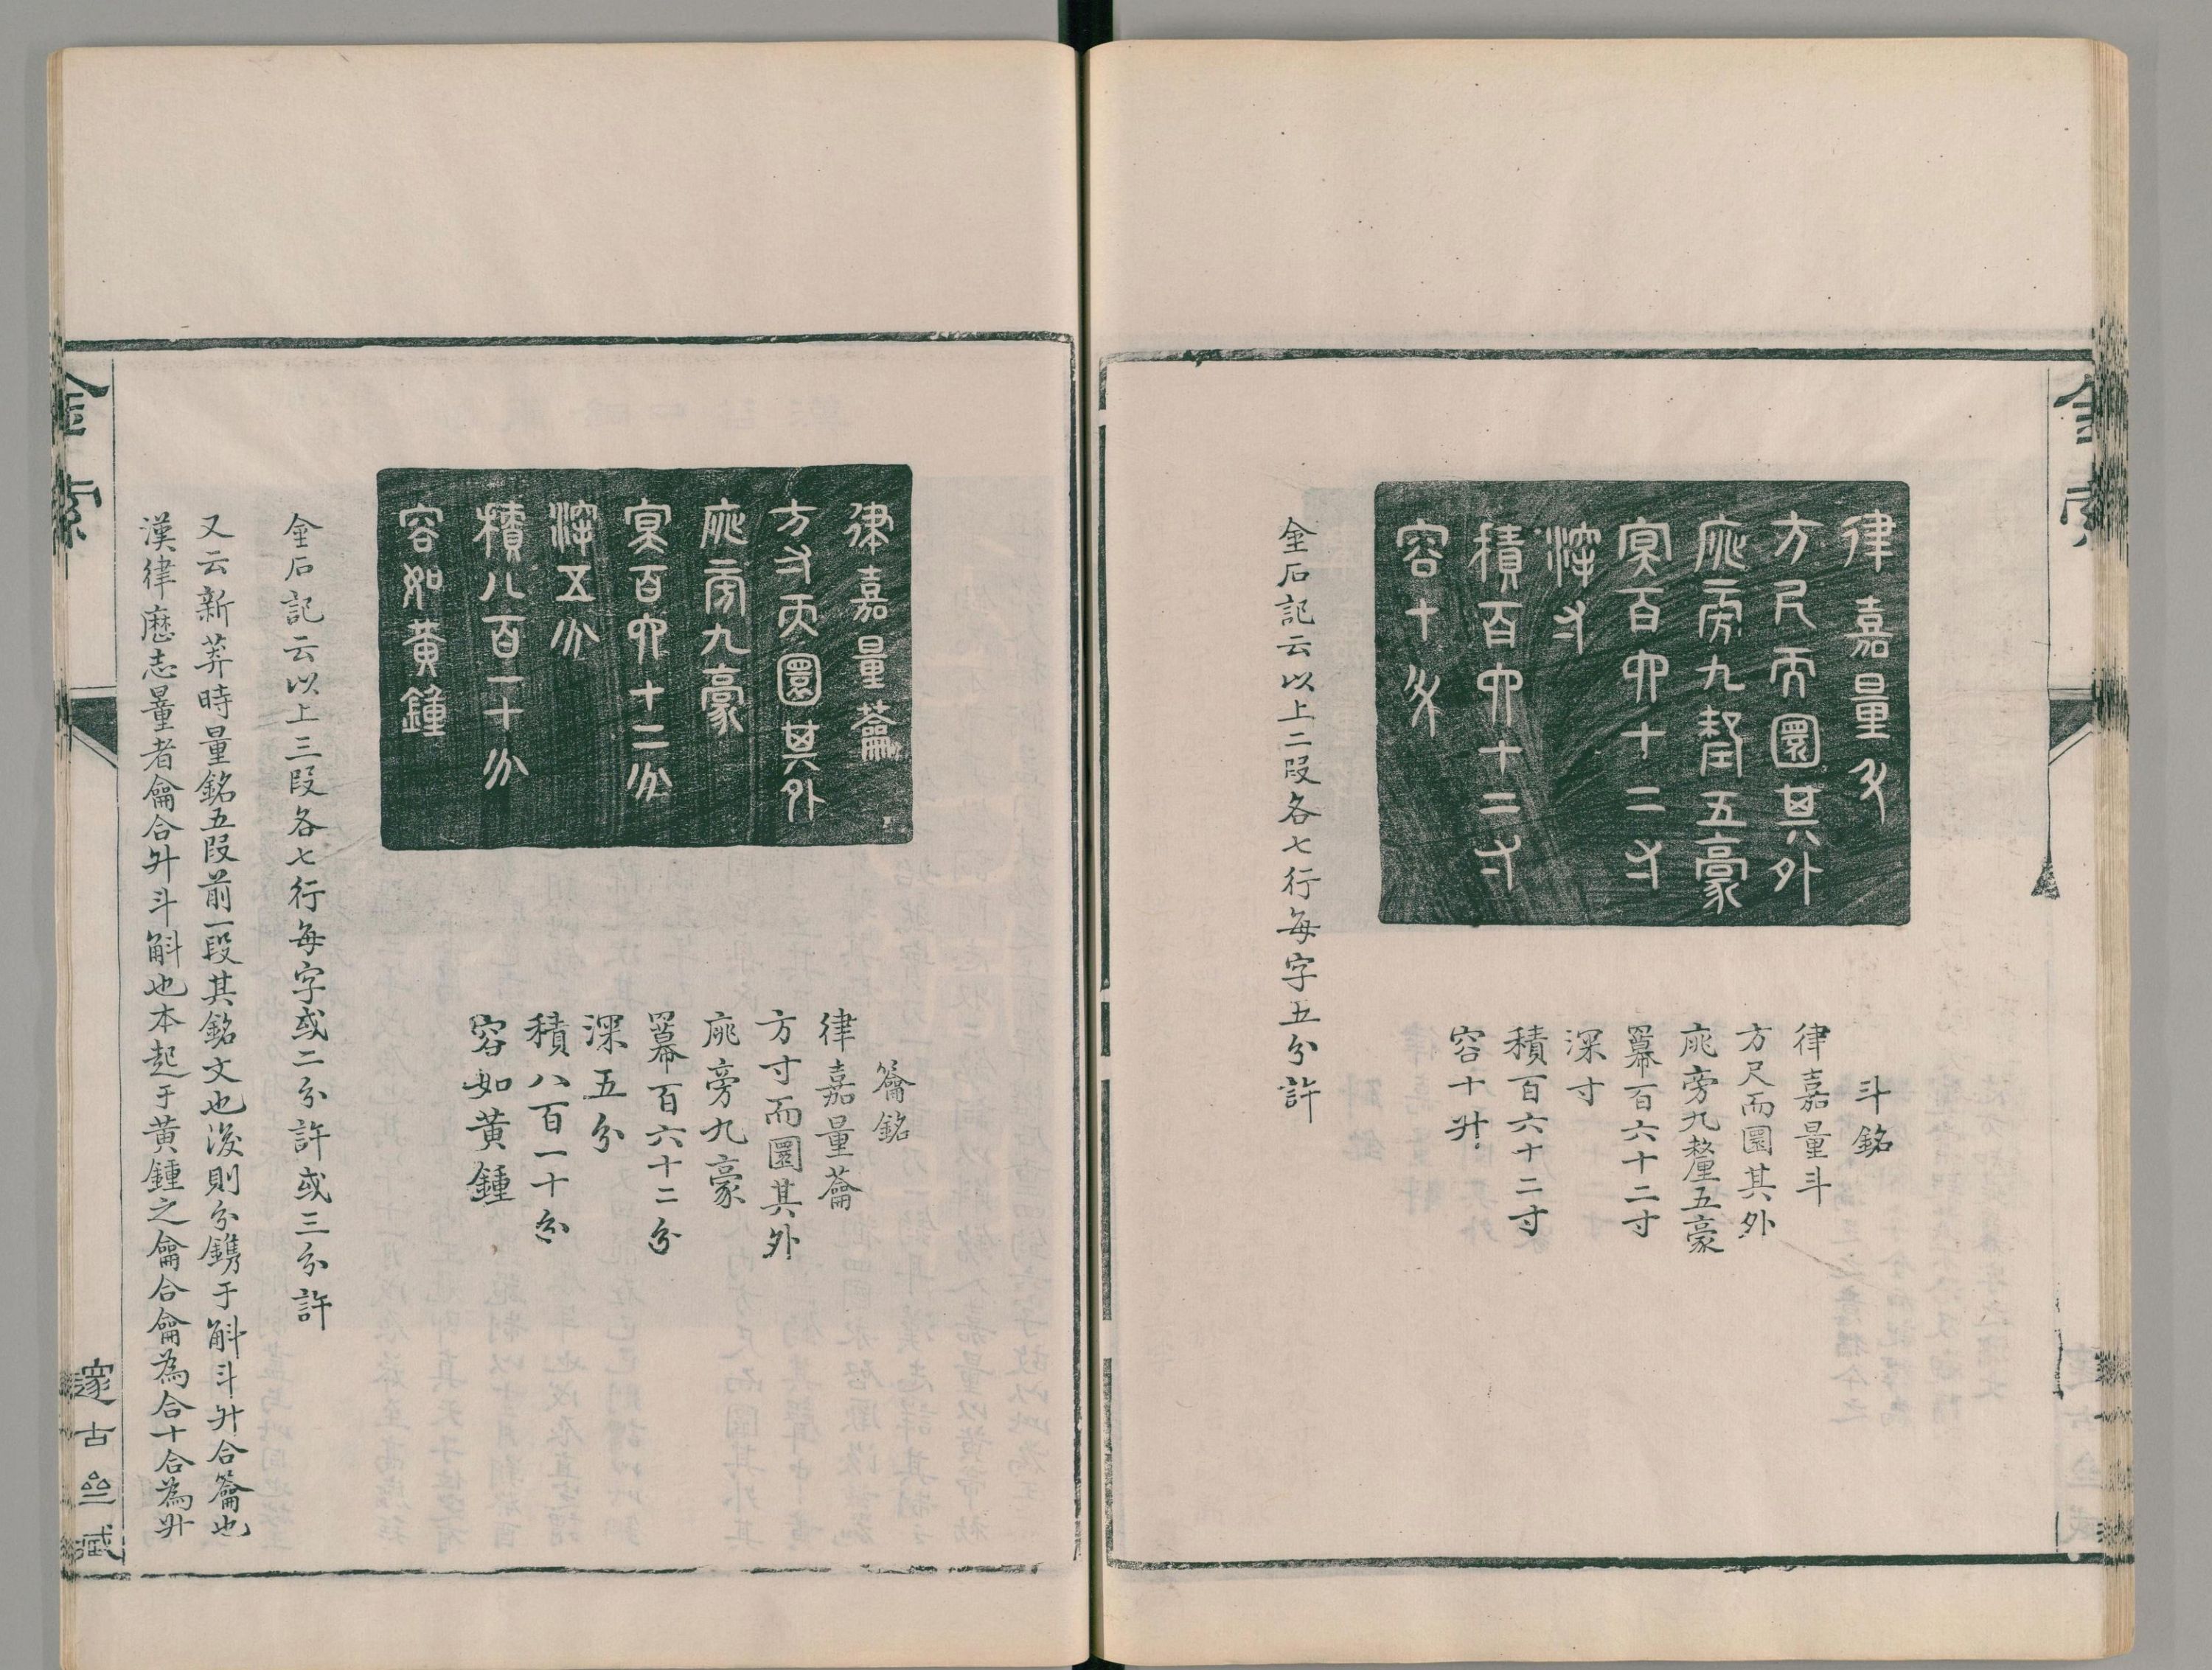 金索
律嘉量斗
方尺而圜其外
庣旁九氂五豪
冥百六十二寸
深寸
積百六十二寸
容十升
斗銘
律嘉量斗
方尺而圜其外
庣旁九釐五豪
冪百六十二寸
深寸
積百六十二寸
容十升
金石記云以上二段各七行每字五分許
律嘉量籥
方寸而圜其外
庣旁九豪
冥百六十二分
深五分
積八百一十分
容如黃鍾
籥銘
律嘉量籥
方寸而圜其外
庣旁九豪
冪百六十二分
深五分
積八百一十分
容如黃鍾
金石記云以上三段各七行每字或二分許或三分許
又云新莽時量銘五段前一段其銘文也後則分鐫于斛斗升合籥也
漢律歷志量者龠合升斗斛也本起于黃鍾之龠合龠為合十合為升
金索
邃古亝藏